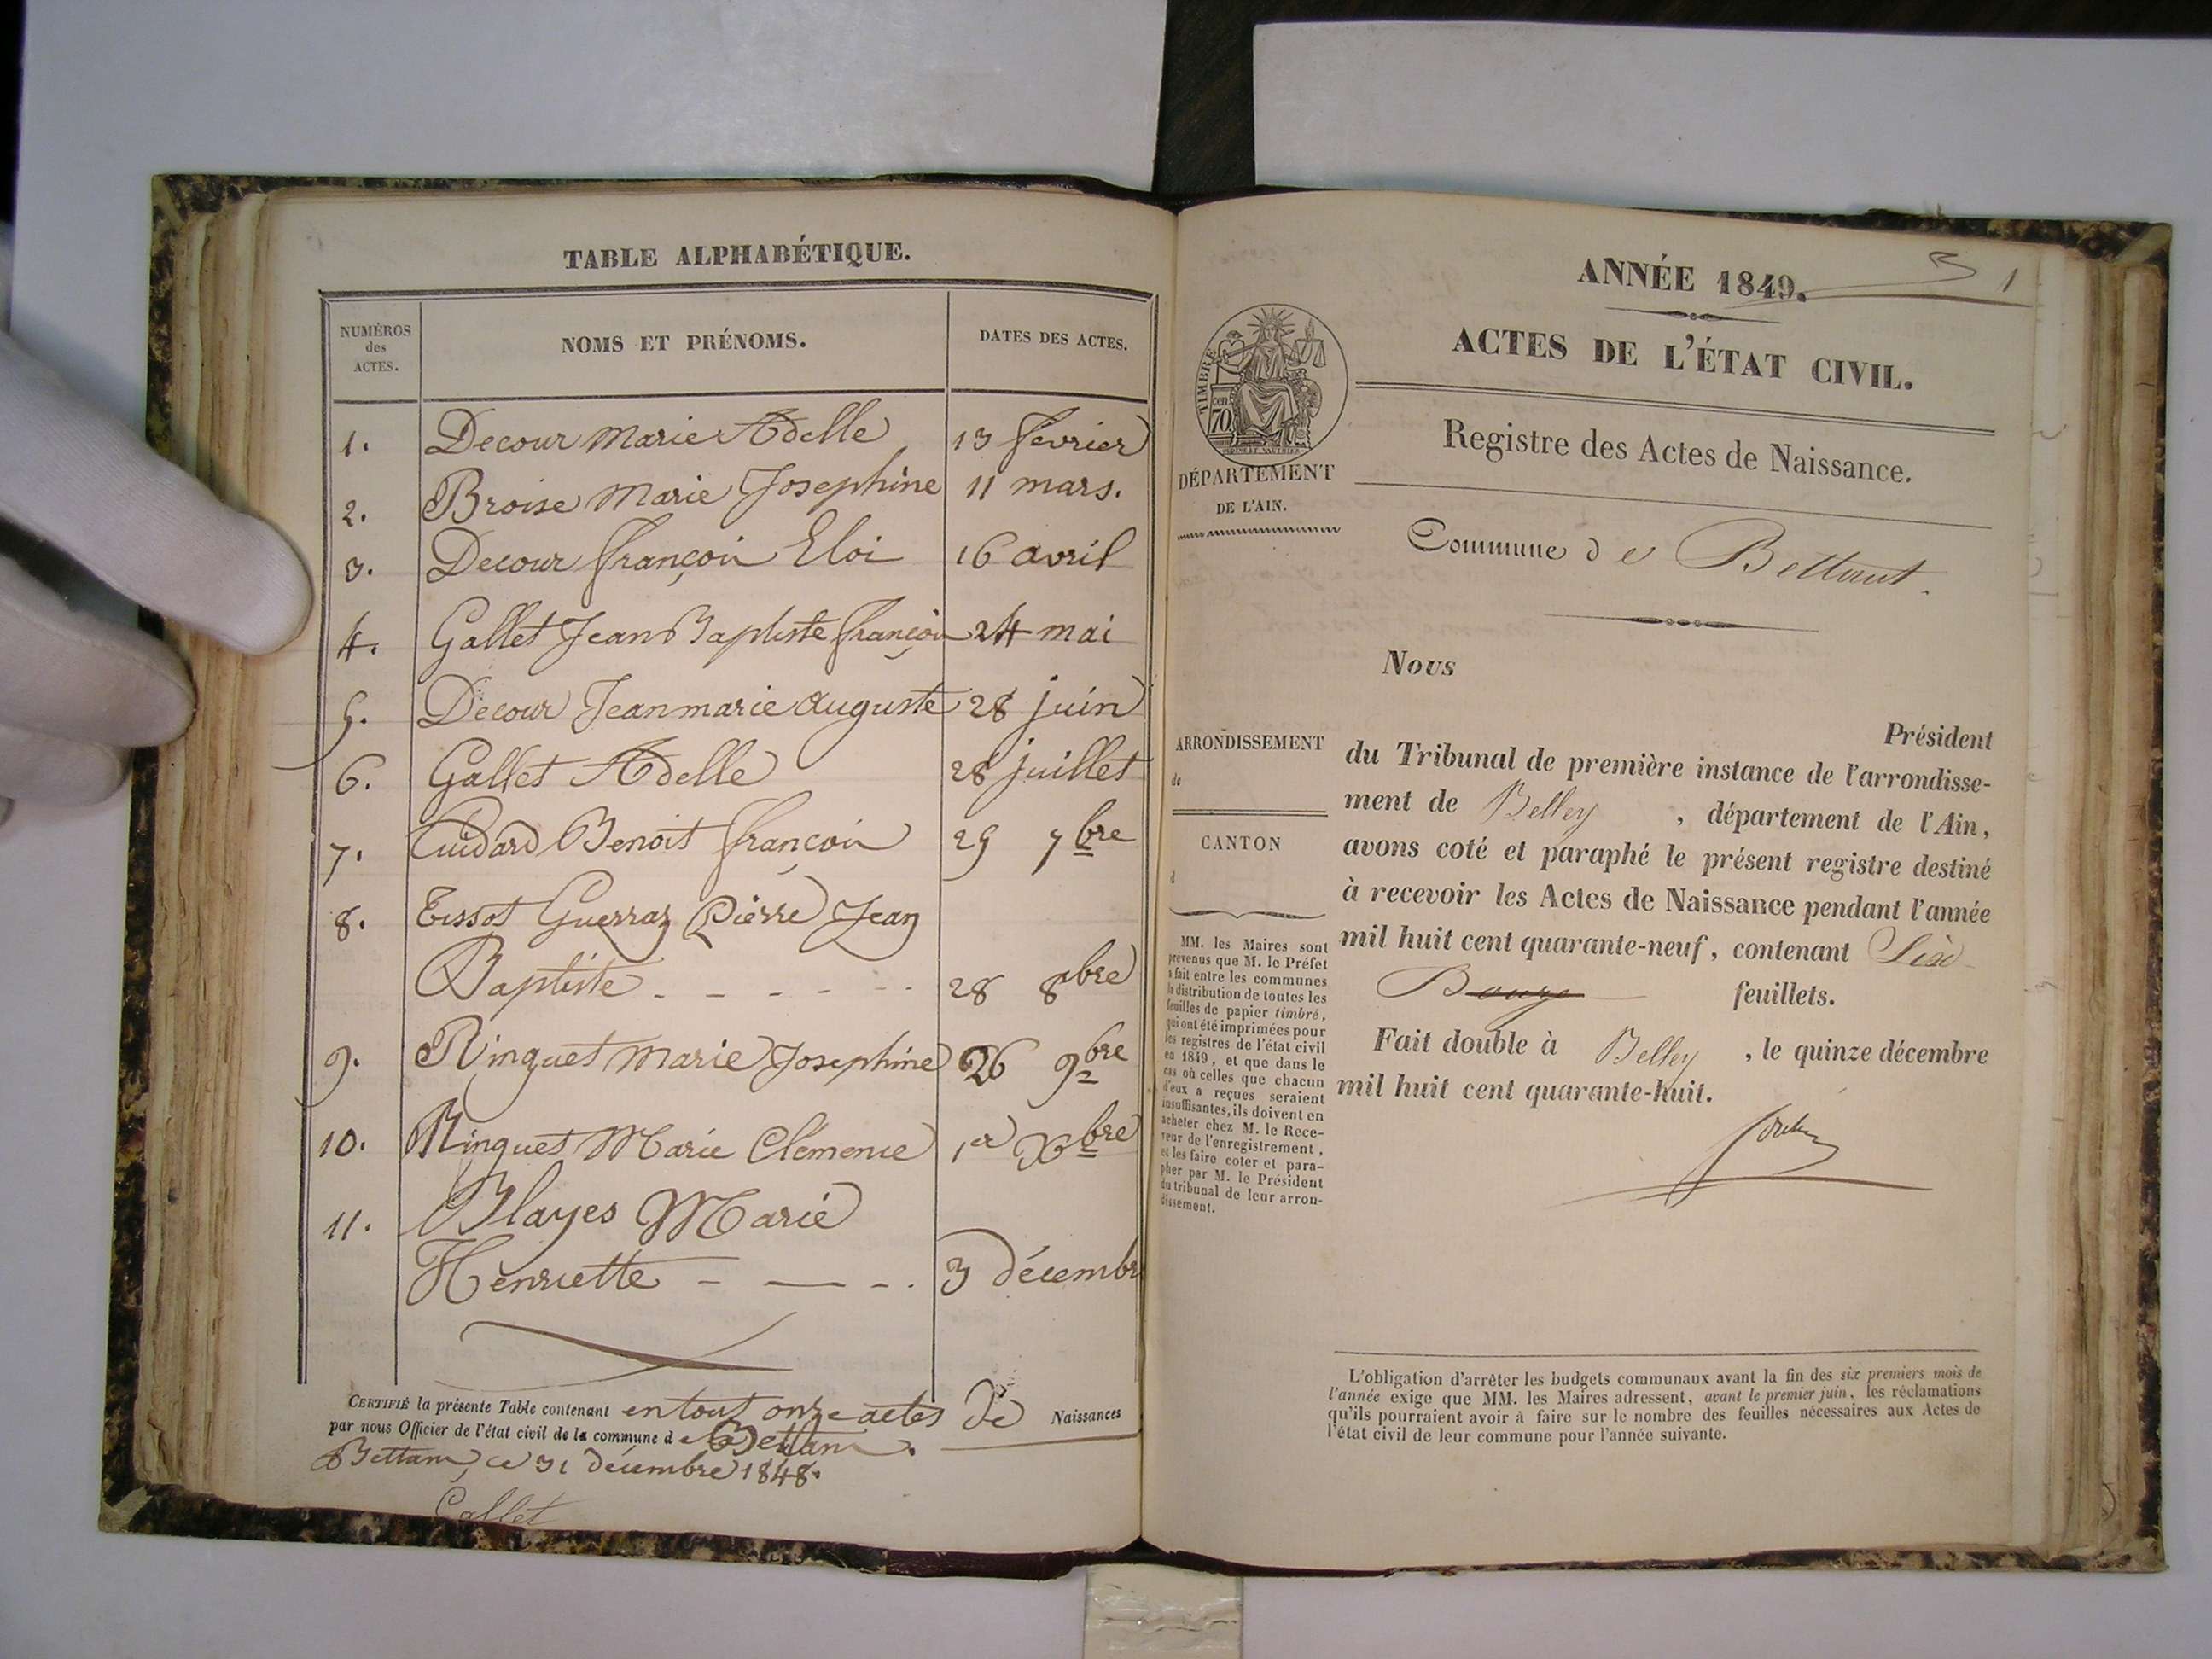 TABLE ALPHABÉTIQUE.
NUMÉROS
des
ACTES.
NOMS ET PRÉNOMS.
DATES DES ACTES.
1. Decour Marie Adelle 13 février
2. Broise Marie Josephine 11 mars.
3. Decour françois Eloi 16 avril
4. Gallet Jean Baptiste françois 24 mai
5. Decour Jean marie auguste 28 juin
6. Gallet Adelle 28 juillet
7. Cuidard Benoit françois 29 7bre
8. Tissot Guerraz Pierre Jean
Baptiste - - - - - - 28 8bre
9. Ringuet Marie Josephine 26 9bre
10. Ringuet Marie Clémence 1er Xbre
11. Blayes Marie
Henriette - - - - . 3 décembre
CERTIFIÉ la présente Table contenant en tout onze actes de Naissances
par nous Officier de l'état civil de la commune de Bettam.
Bettam, ce 31 décembre 1848.
Gallet
ANNÉE 1849.
1
ACTES DE L'ÉTAT CIVIL.
TIMBRE
70
cen.
Registre des Actes de Naissance.
DÉPARTEMENT
DE L'AIN.
Commune de Bettant.
Nous
Président
du Tribunal de première instance de l'arrondisse-
ment de Belley, département de l'Ain,
avons coté et paraphé le présent registre destiné
à recevoir les Actes de Naissance pendant l'année
mil huit cent quarante-neuf, contenant Six
feuillets.
Fait double à Belley, le quinze décembre
mil huit cent quarante-huit.
ARRONDISSEMENT
de
CANTON
d
MM. les Maires sont
prévenus que M. le Préfet
a fait entre les communes
la distribution de toutes les
feuilles de papier timbré,
qui ont été imprimées pour
les registres de l'état civil
en 1849, et que dans le
cas où celles que chacun
d'eux a reçues seraient
insuffisantes, ils doivent en
acheter chez M. le Rece-
veur de l'enregistrement,
et les faire coter et para-
pher par M. le Président
du tribunal de leur arron-
dissement.
L'obligation d'arrêter les budgets communaux avant la fin des six premiers mois de
l'année exige que MM. les Maires adressent, avant le premier juin, les réclamations
qu'ils pourraient avoir à faire sur le nombre des feuilles nécessaires aux Actes de
l'état civil de leur commune pour l'année suivante.